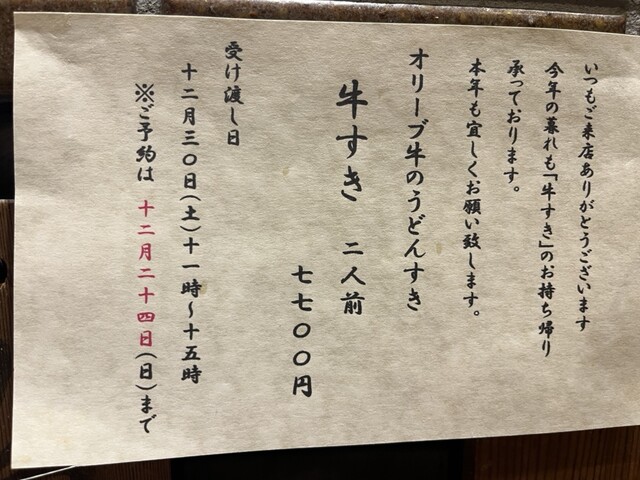 いつもご来店ありがとうございます
今年の暮れも「牛すき」のお持ち帰り
承っております。
本年も宜しくお願い致します。
オリーブ牛のうどんすき
牛すき 二人前
七七〇〇円
受け渡し日
十二月三〇日(土)十一時～十五時
※ご予約は 十二月二十四日(日)まで